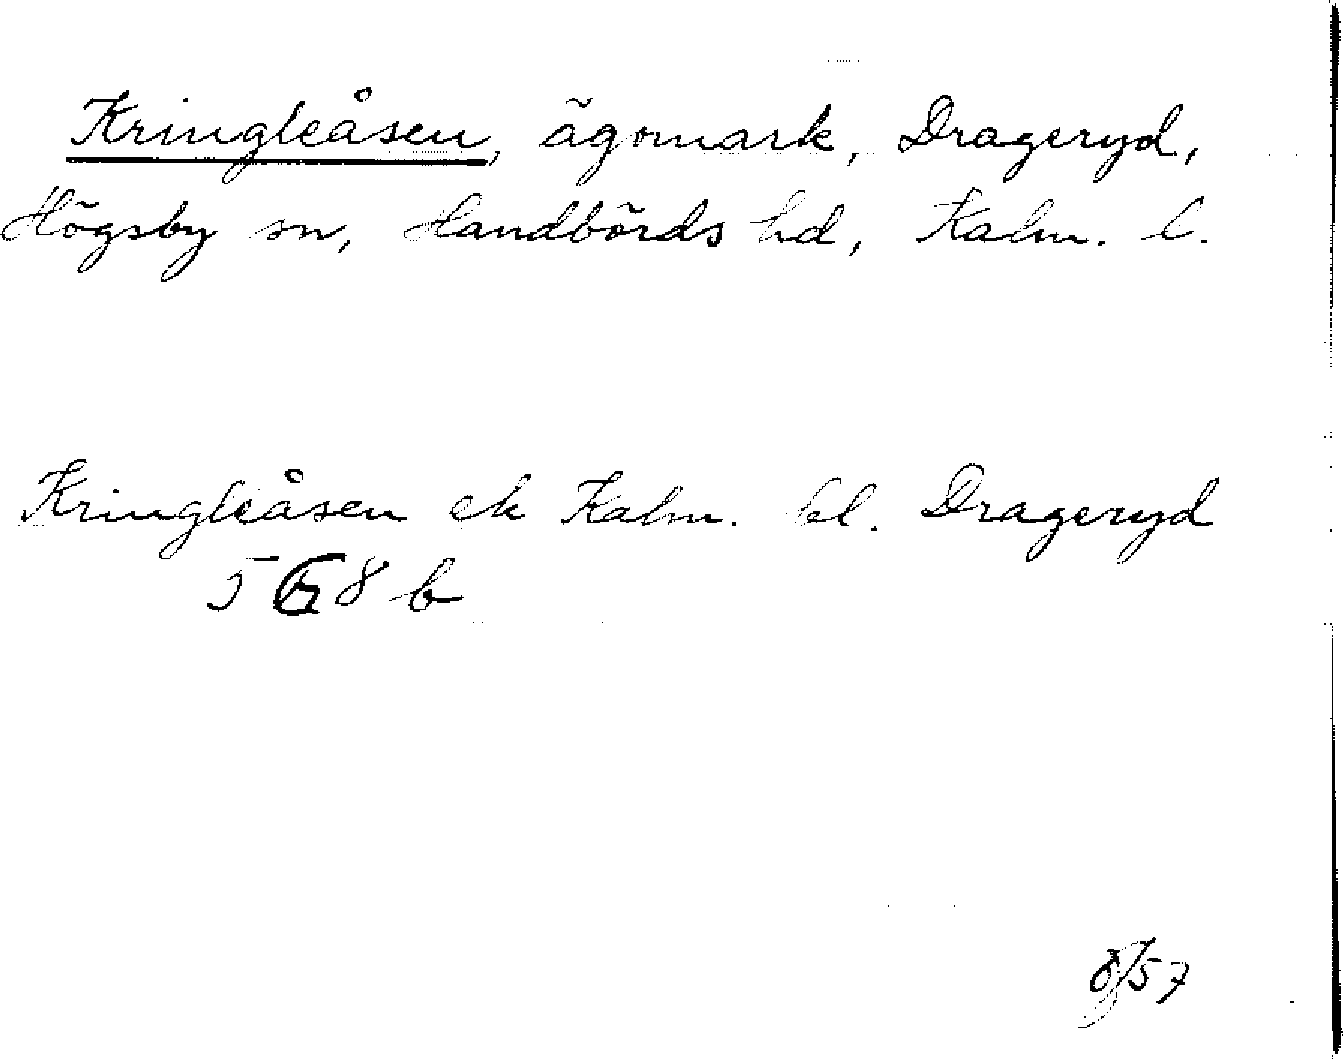 Kringleåsen, ägomark, Drageryd,
Högsby sn, Handbörds hd, Kalm. l.
Kringleåsen ek Kalm. bl. Drageryd
5 G 8 b
8/57